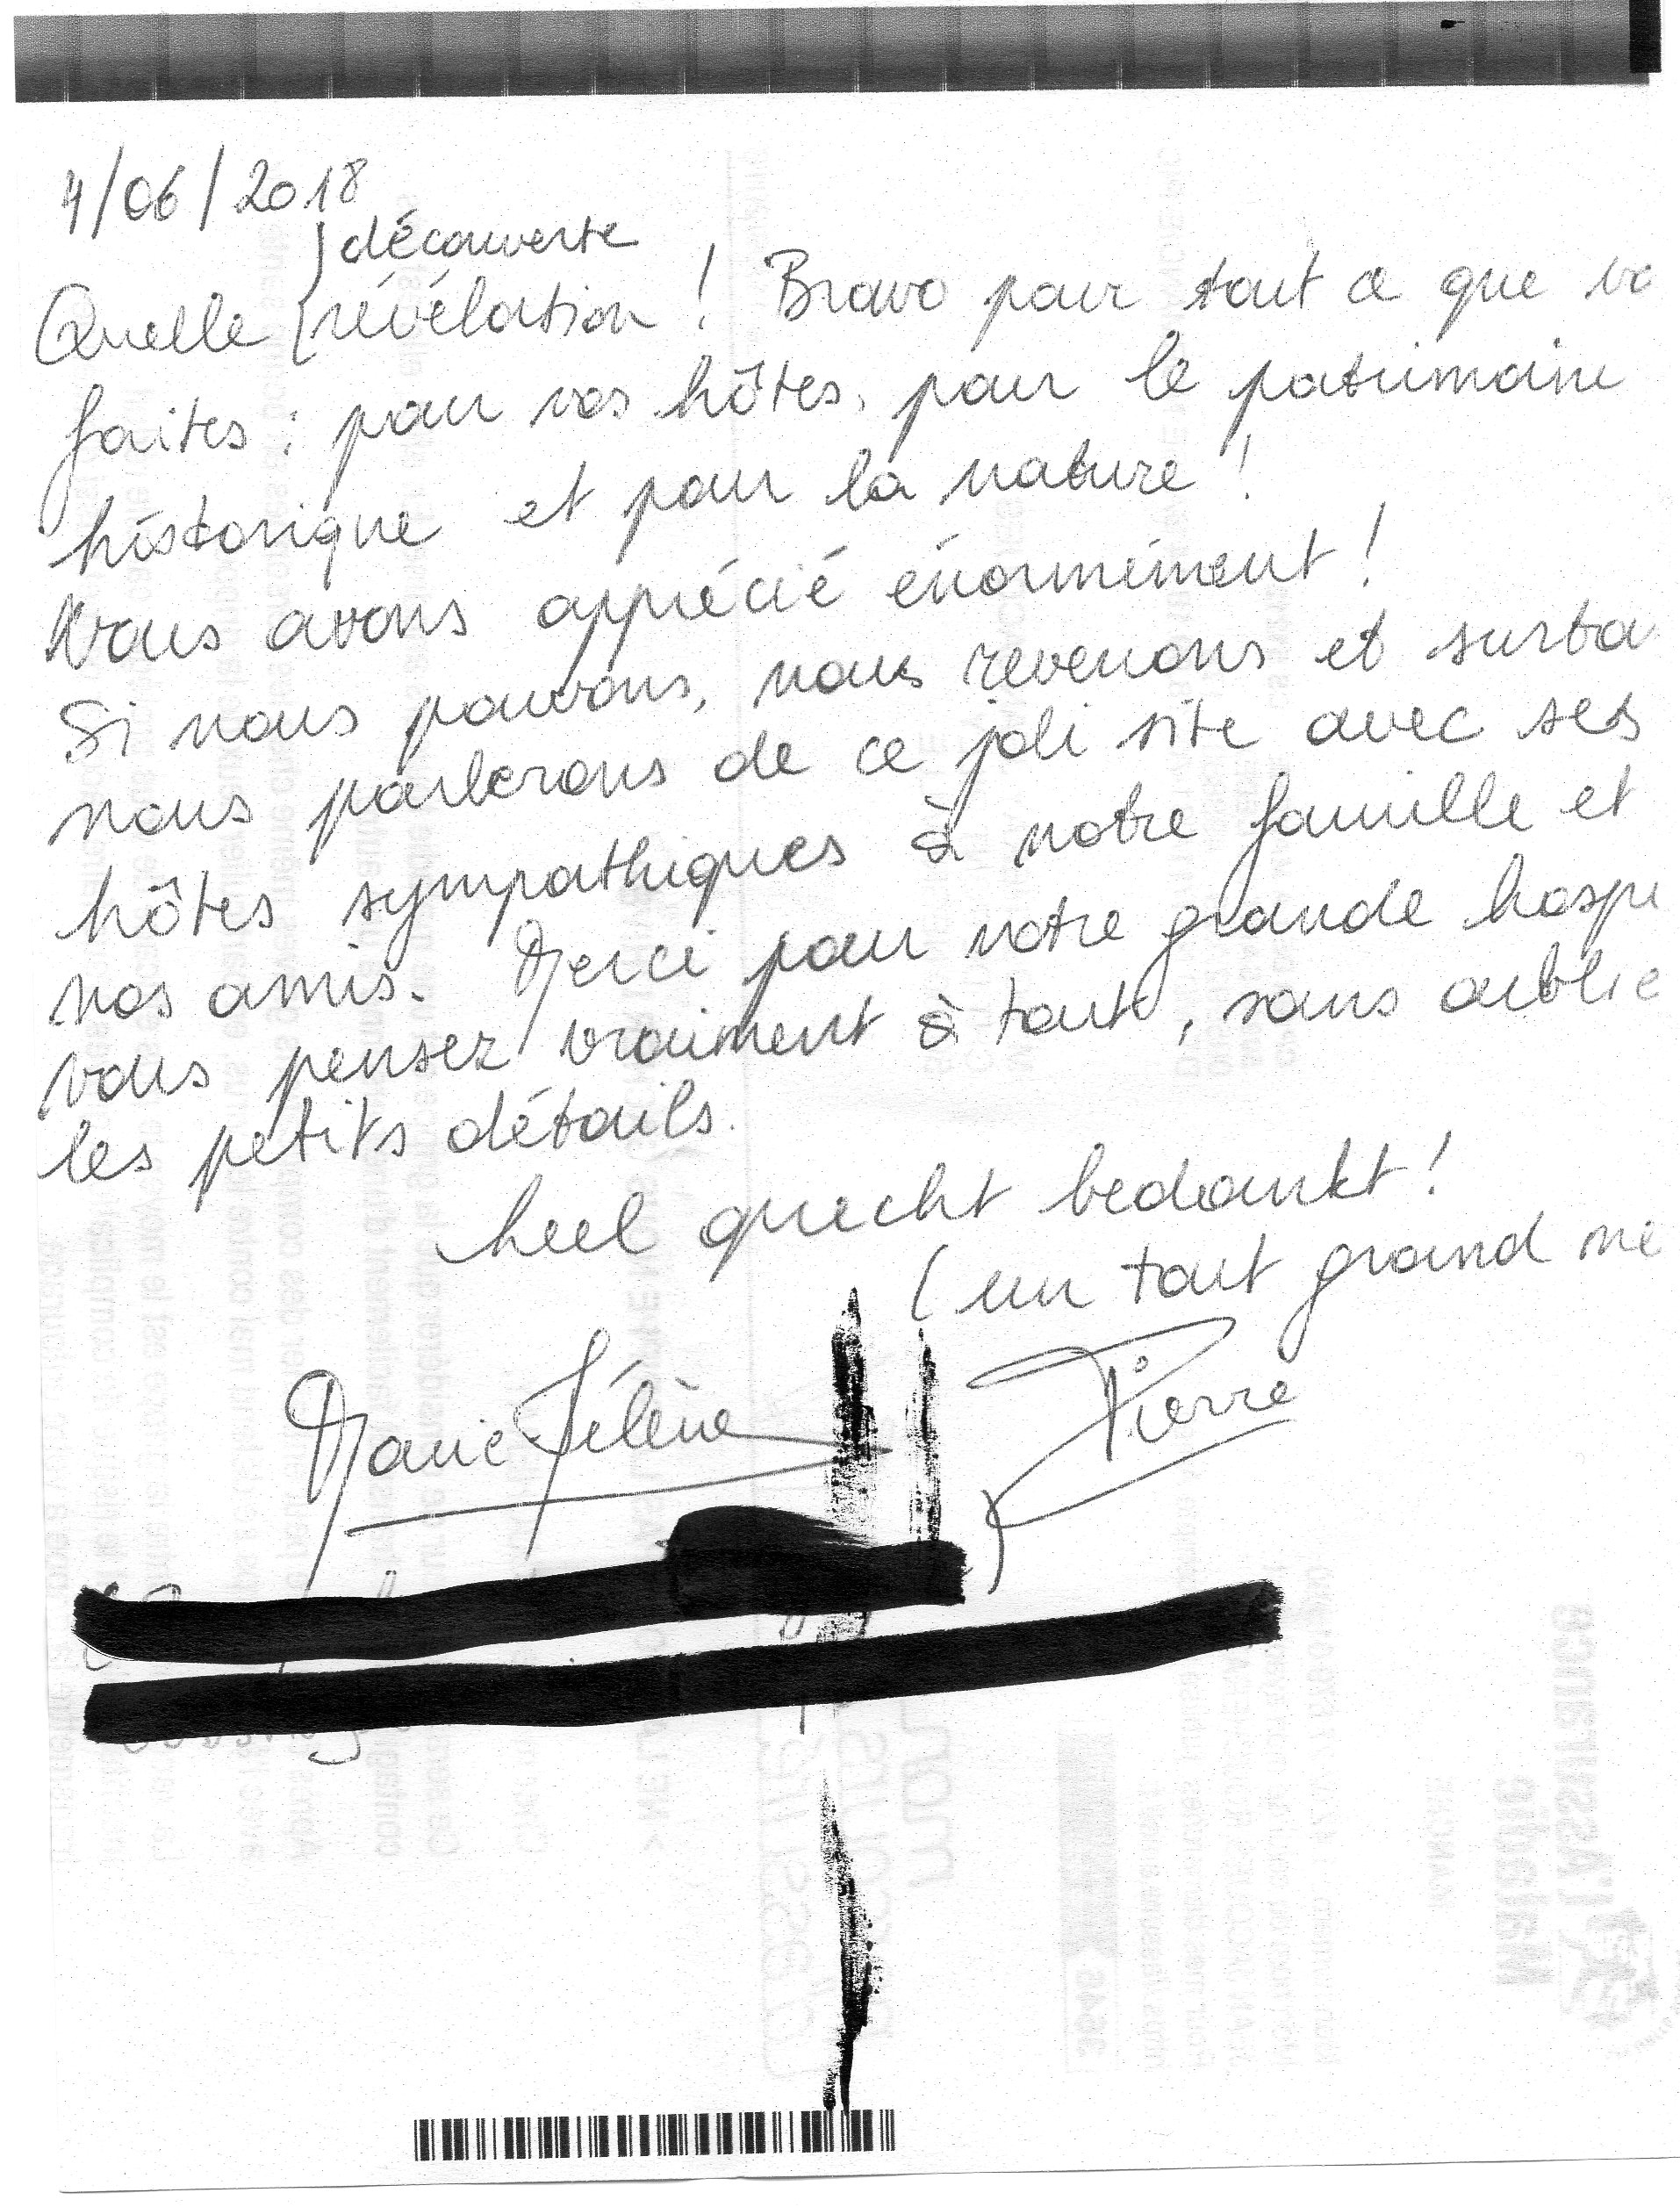 4/06/2018
découverte
Quelle révélation ! Bravo pour tout ce que vo
faites : pour vos hôtes, pour le patrimoine
historique et pour la nature !
Nous avons apprécié énormément !
Si nous pouvons, nous revenons et surto
nous parlerons de ce joli site avec ses
hôtes sympathiques à notre famille et
nos amis. Merci pour votre grande hospi
vous pensez vraiment à tout, sans oublie
les petits détails.
heel grecht bedankt !
( un tout grand me
Marie-Hélène Pierre